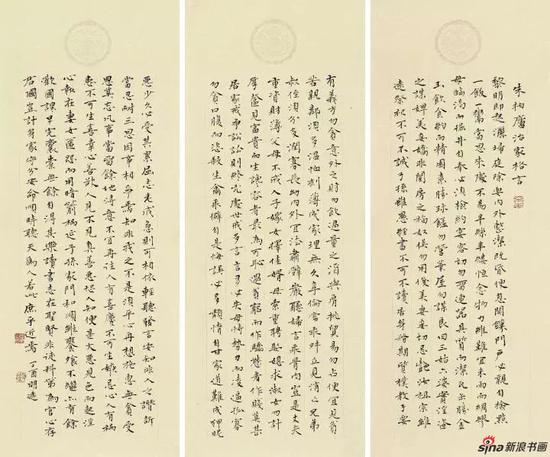 朱柏廬治家格言
黎明即起灑掃庭除要內外整潔既昏便息關鎖門戶必親自檢點
一飯一粥當思來處不易半絲半縷恒念物力維艱宜未雨而綢繆
毋臨渴而掘井自奉必須檢約宴客切勿留連器具質而潔瓦缶勝金
玉飲食約而精園蔬勝珍饈勿營華屋勿謀良田三姑六婆實淫盜
之媒婢美妾嬌非閨房之福奴僕勿用俊美妻妾切忌豔妝祖宗雖
遠祭祀不可不誠子孫雖愚經書不可不讀居身務期質樸教子要
有義方勿貪意外之財勿飲過量之酒與肩挑貿易勿占便宜見貧
苦親鄰須多溫恤刻薄成家理無久享倫常乖舛立見消亡兄弟
叔侄須分多潤寡長幼內外宜法肅辭嚴聽婦言乖骨肉豈是丈夫
重資財薄父母不成人子嫁女擇佳婿毋索重聘娶媳求淑女勿計
厚奩見富貴而生諂容者最為可恥遇貧窮而作驕態者賤莫甚
居家戒爭訟訟則終凶處世戒多言言多必失毋恃勢力而凌逼孤寡
勿貪口腹而恣殺生禽乖僻自是悔誤必多頹惰自甘家道難成狎昵
惡少久必受其累屈志老成急則可相依輕聽發言安知非人之譖訴
當忍耐三思因事相爭焉知非我之不是須平心再想施惠毋念受
恩莫忘凡事當留餘地得意不宜再往人有喜慶不可生妒忌心人有禍
患不可生喜幸心善欲人見不是真善惡恐人知便是大惡見色而起淫
心報在妻女匿怨而用暗箭禍延子孫家門和順雖饔飧不繼亦有餘
歡國課早完囊橐無餘自得其樂讀書志在聖賢非徒科第為官心存
君國豈計身家守分安命順時聽天為人若此庶乎近焉 丁酉
sina新浪书画